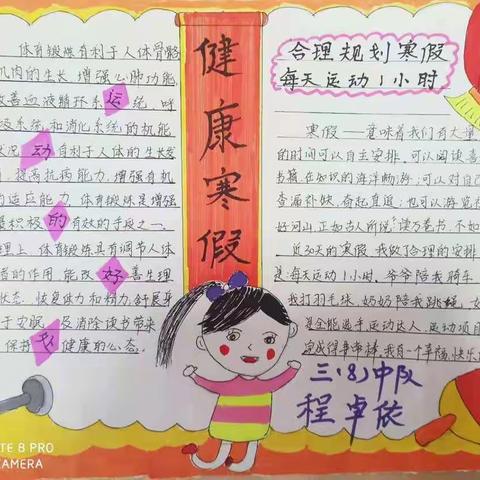 体育锻炼有利于人体骨骼
肌肉的生长,增强心肺功能,
改善血液循环系统、呼
吸系统和消化系统的机能
状况,有利于人体的生长发
育,提高抗病能力,增强有机
的适应能力。体育锻炼是增强
最积极的有效的手段之一。
理上,体育锻炼具有调节人体
的作用,能改善生理
状态,恢复体力和精力,舒展身
于安眠,及消除读书带来
保持健康的心态。
运
动
的
好
处
健康寒假
合理规划寒假
每天运动1小时
寒假——意味着我们有大量
的时间可以自主安排,可以阅读喜
书籍,在知识的海洋畅游;可以对自己
查漏补缺,奋起直追;也可以游览祖
好河山,正如古人所说"读万卷书,不如
近30天的寒假,我做了合理的安排
是:每天运动1小时。爷爷陪我骑车
我打羽毛球,奶奶陪我跳绳,
是全能选手运动达人,运动项目
我有一个幸福、快乐
三(8)中队
程卓依
TE 8 PRO
CAMERA